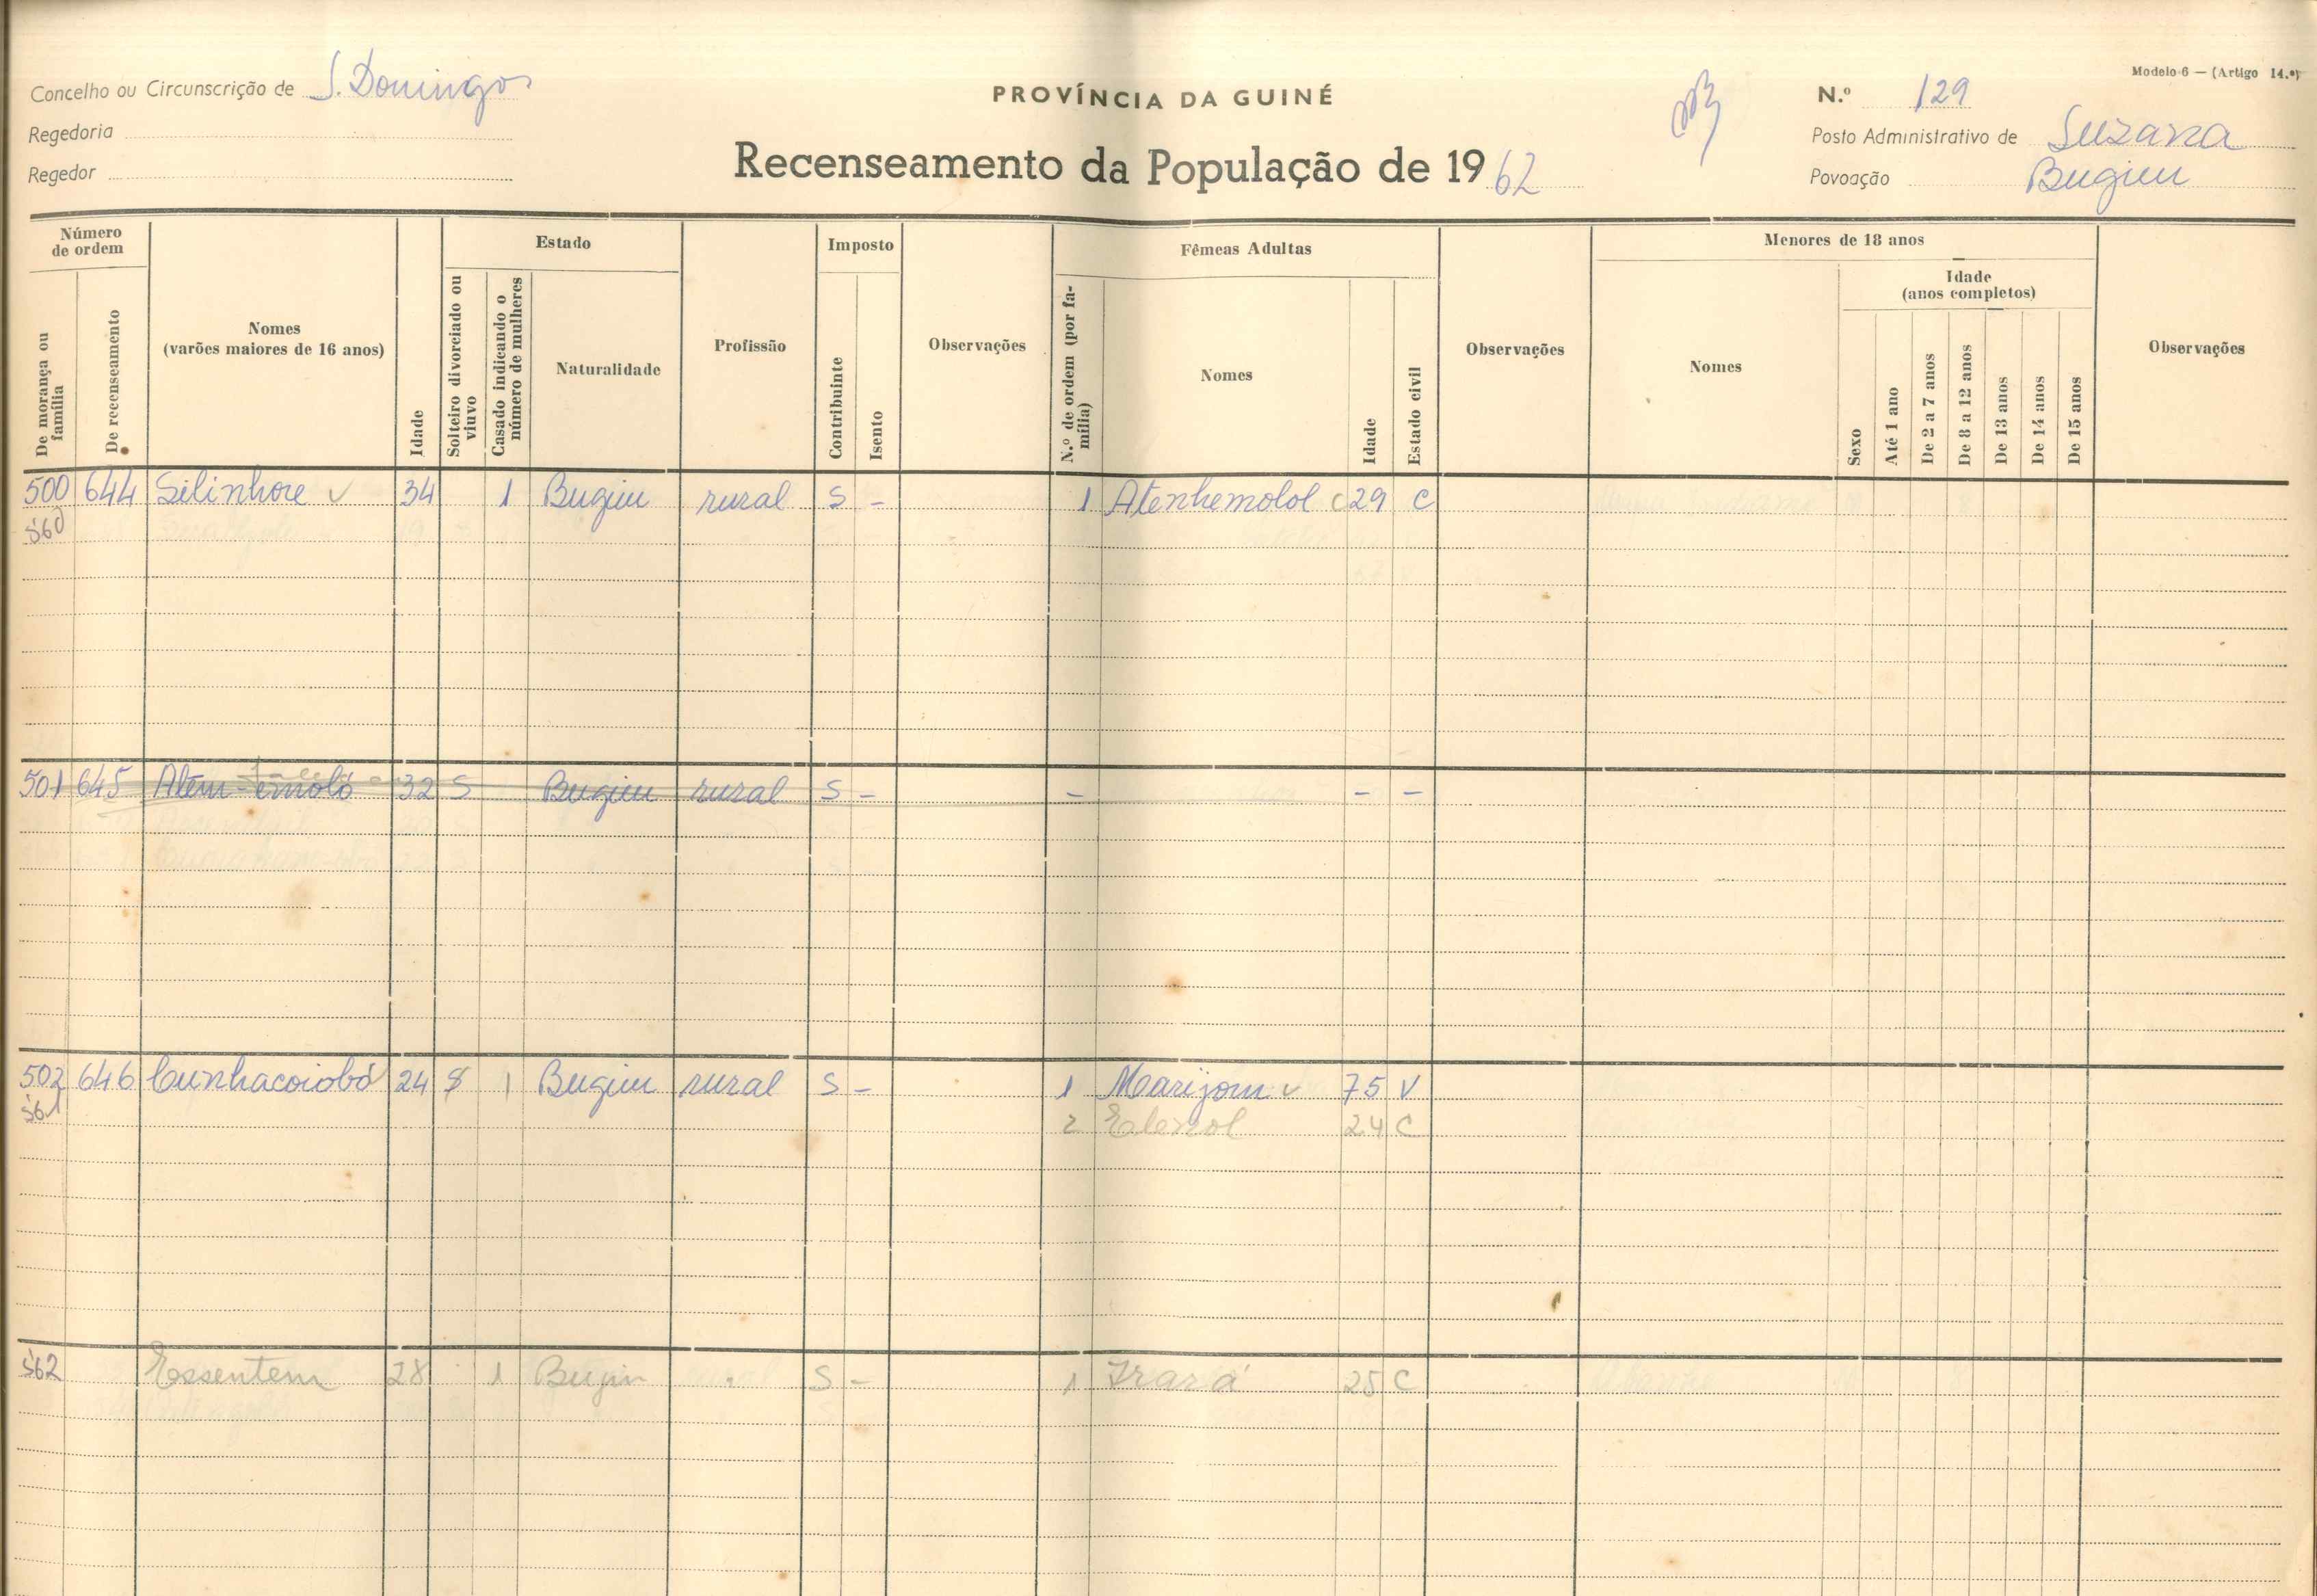 Modelo 6 — (Artigo 14.º)
Concelho ou Circunscrição de S. Domingos
PROVÍNCIA DA GUINÉ
N.º 129
Regedoria
Posto Administrativo de Suzana
Regedor
Recenseamento da População de 1962
Povoação Bugim
Número de ordem
Estado
Imposto
Fêmeas Adultas
Menores de 18 anos
Idade (anos completos)
De morança ou família
De recenseamento
Nomes (varões maiores de 16 anos)
Idade
Solteiro divorciado ou viuvo
Casado indicando o número de mulheres
Naturalidade
Profissão
Contribuinte
Isento
Observações
N.º de ordem (por família)
Nomes
Idade
Estado civil
Observações
Nomes
Sexo
Até 1 ano
De 2 a 7 anos
De 8 a 12 anos
De 13 anos
De 14 anos
De 15 anos
Observações
500 644 Silinhore 34 1 Bugim rural S - 1 Atenhemolol 29 C
560
501 645 Atem-emoló 32 S Bugim rural S - - - -
502 646 Cunhacoiobó 24 S 1 Bugim rural S - 1 Marijom 75 V
561 2 Elenol 24 C
562 Essentem 28 1 Bugin " S - 1 Irará 25 C